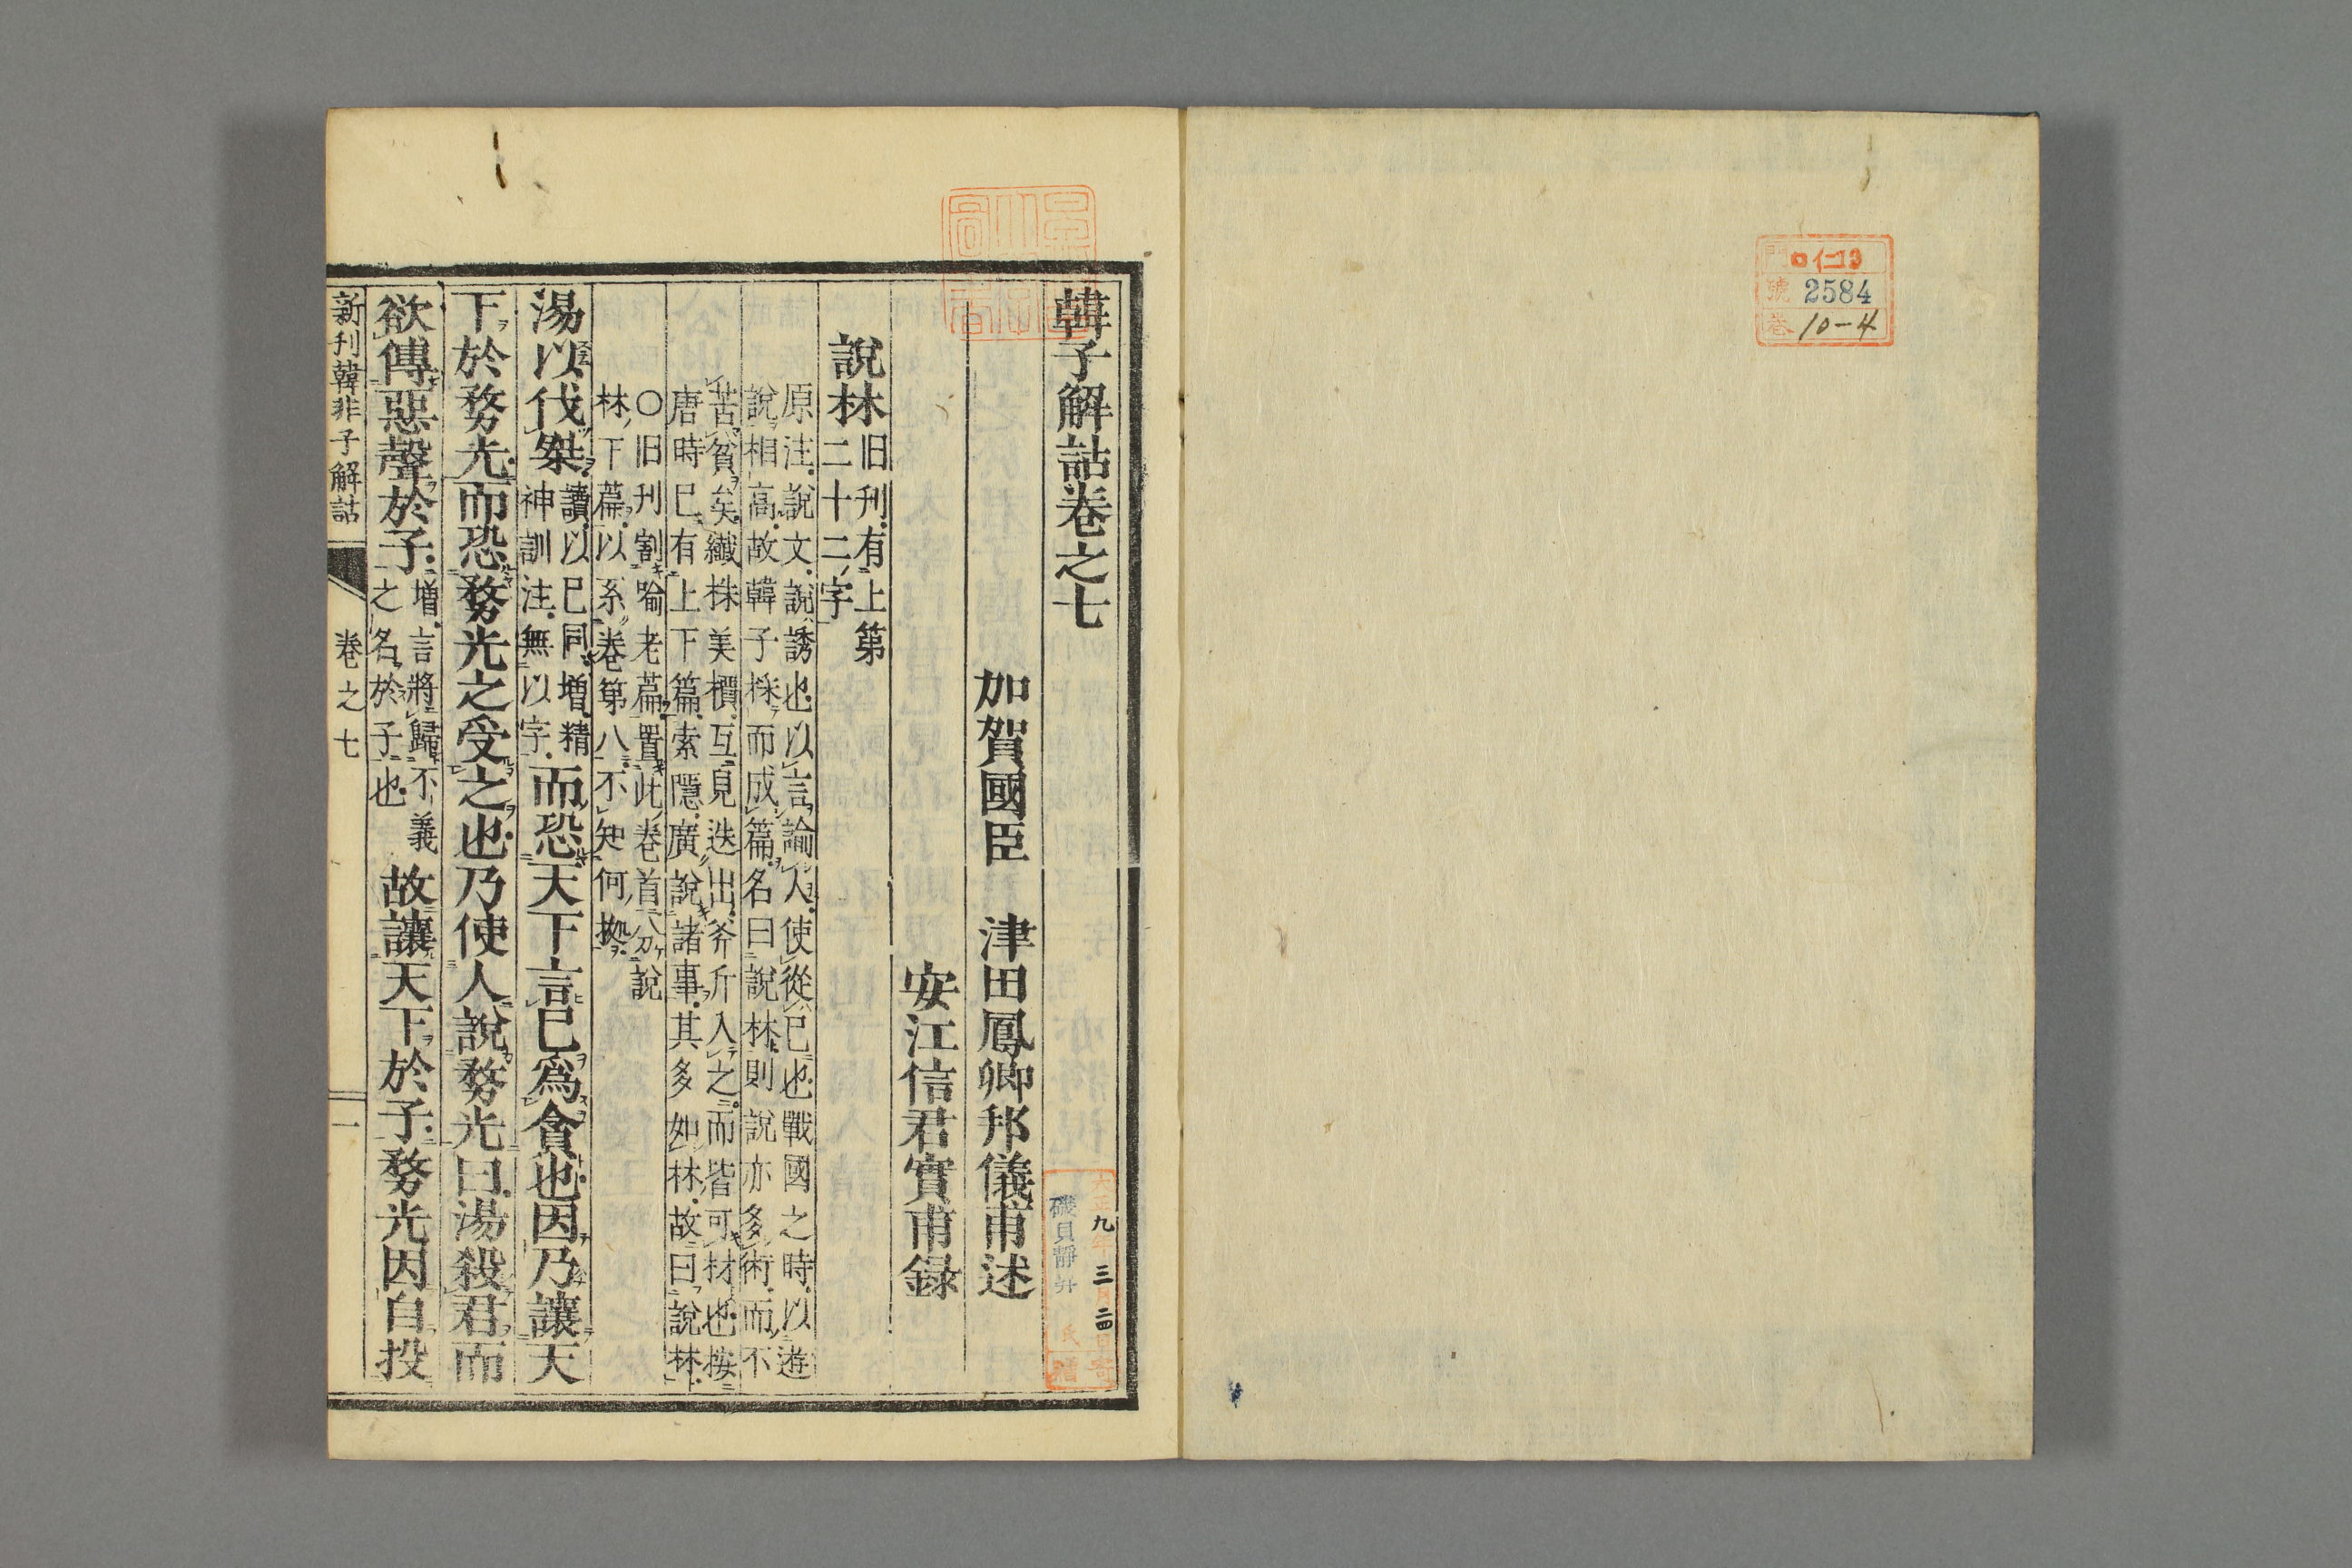 門 ロ仁13
號 2584
卷 10-4
韓子解詁卷之七
加賀國臣 津田鳳卿邦儀甫述
安江信君實甫録
說林 旧刊有上第
二十二字
原注說文說誘也以言諭人使從已也戰國之時以遊
說相高故韓子採而成篇名曰說林則說亦多術而不
苦貧矣纖袾美櫝互見迭出斧斤入之而皆可材也按
唐時已有上下篇索隱廣說諸事其多如林故曰說林
〇旧刊割喻老篇置此卷首分說
林下篇以系卷第八不知何拠
湯以伐桀 讀以已同増精
神訓注無以字
而恐天下言已爲貪也因乃讓天
下於務光而恐務光之受之也乃使人說務光曰湯殺君而
欲傳惡聲於子 増言將歸不義
之名於子也
故讓天下於子務光因自投
新刊韓非子解詁 卷之七 一
大正九年三月二四日寄贈
磯貝靜 氏